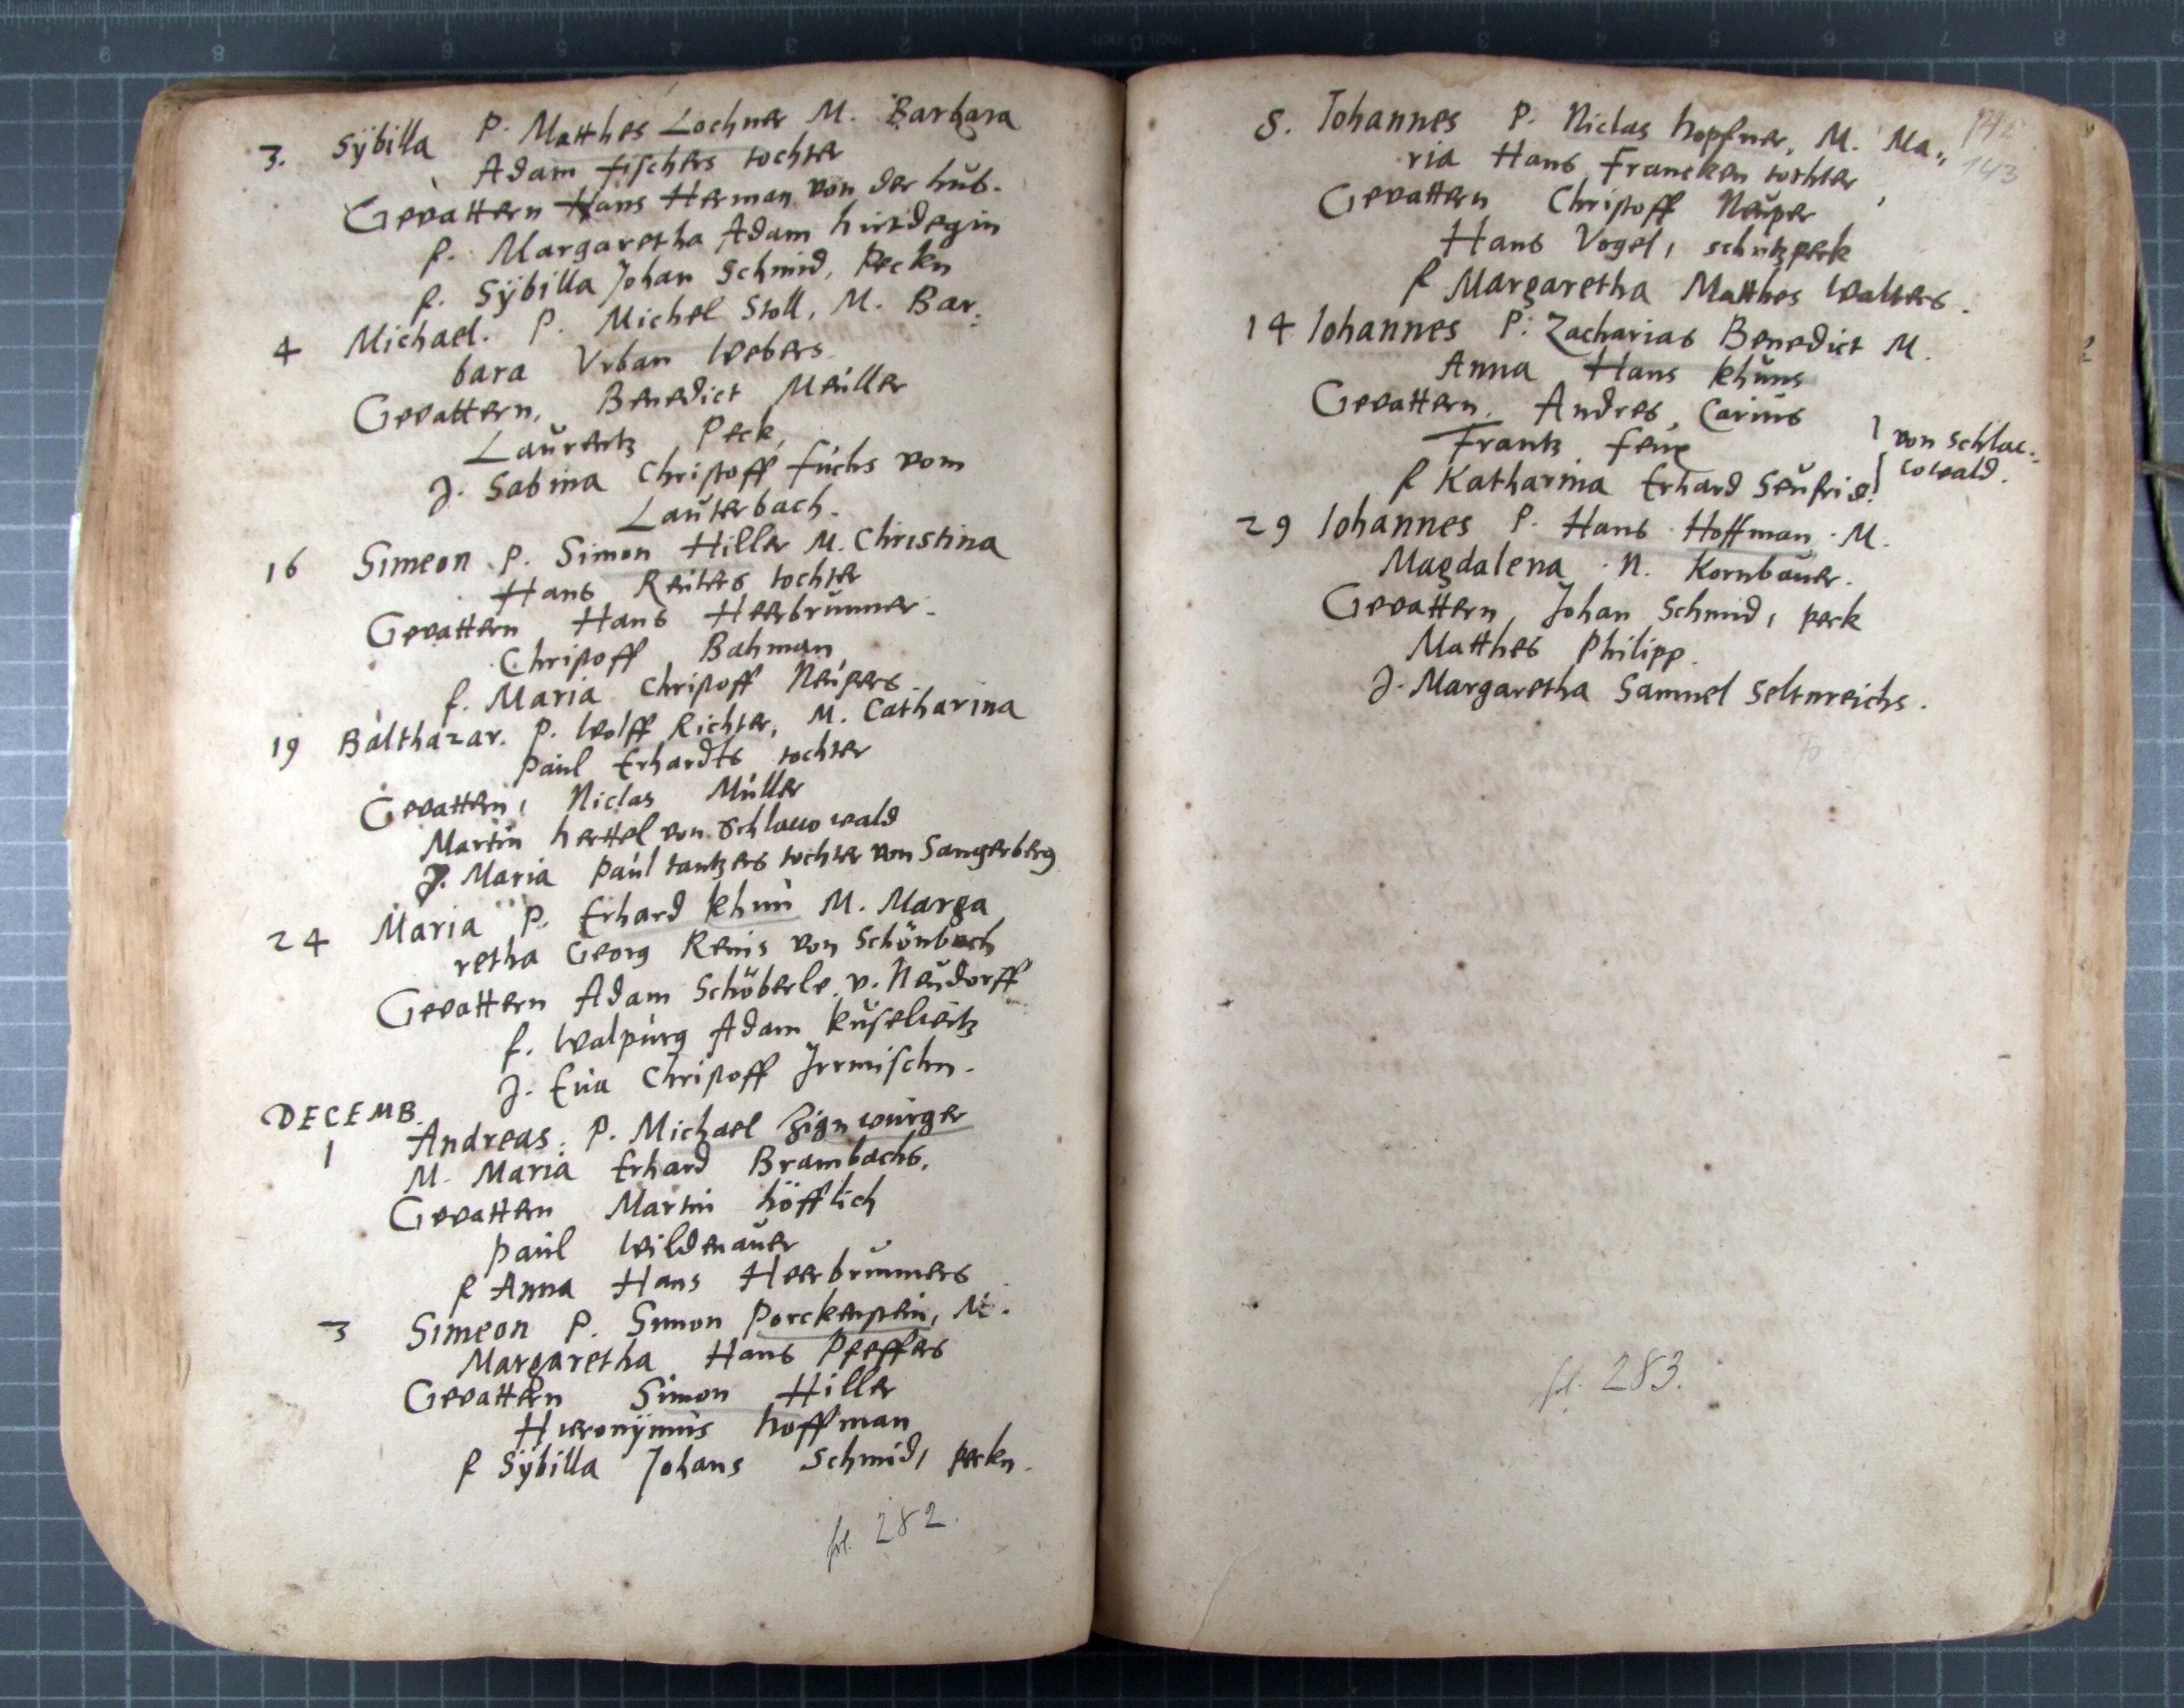 3. Sÿbilla P. Matthes Lochner M. Barbara
Adam Fischers tochter
Gevattern Hans Herman von der hub.
f. Margaretha Adam hirtdegin
f. Sÿbilla Johan Schmid, Peckn
4 Michael. P. Michel Stoll, M. Bar:
bara Vrban Webers
Gevattern, Benedict Meüller
Laurentz Peck,
J. Sabina Christoff füchs vom
Lauterbach.
16 Simeon P. Simon Hiller M. Christina
Hans Reiters tochter
Gevattern Hans Heerbrunner.
Christoff Bahman
f. Maria Christoff Neüpers
19 Balthazar. P. Wolff Richter, M. Catharina
Paul Erhardts tochter
Gevattern, Niclas Müller
Martin hertel von Schlacowald
J. Maria Paul tantzers tochter von Sangerberg
24 Maria P. Erhard Khun M. Marga
retha Georg Renis von Schönbach
Gevattern Adam Schöberle. v. Neüdorff
f. Walpurg Adam
J. Eua Christoff Jrrmischn.
DECEMB.
1 Andreas. P. Michael Zignwürger
M. Maria Erhard Brambachs.
Gevattern Martin höfflich
Paul Wildenauer
f Anna Hans Heerbrunners
3 Simeon P. Simon Porckenstein, M.
Margaretha Hans Pfeffers
Gevattern Simon Hiller
Hieronÿmus hoffman
f Sÿbilla Johans Schmid, peckn.
fol. 282.
143
8. Iohannes P. Niclas hopfner, M. Ma:
ria Hans Francken tochter
Gevattern Christoff Neüper
Hans Vogel, schutzpeck
f Margaretha Matthes Walters.
14 Iohannes P. Zacharias Benedict M.
Anna Hans Khuns
Gevattern. Andres Carius
Frantz von Schlac:
f Katharina Erhard Seufrid. cowald.
29 Iohannes P. Hans Hoffman. M.
Magdalena. N. Kornbauer.
Gevattern Johan Schmid, peck
Matthes Philipp.
J. Margaretha Samuel Seltnreichs.
fol. 283.